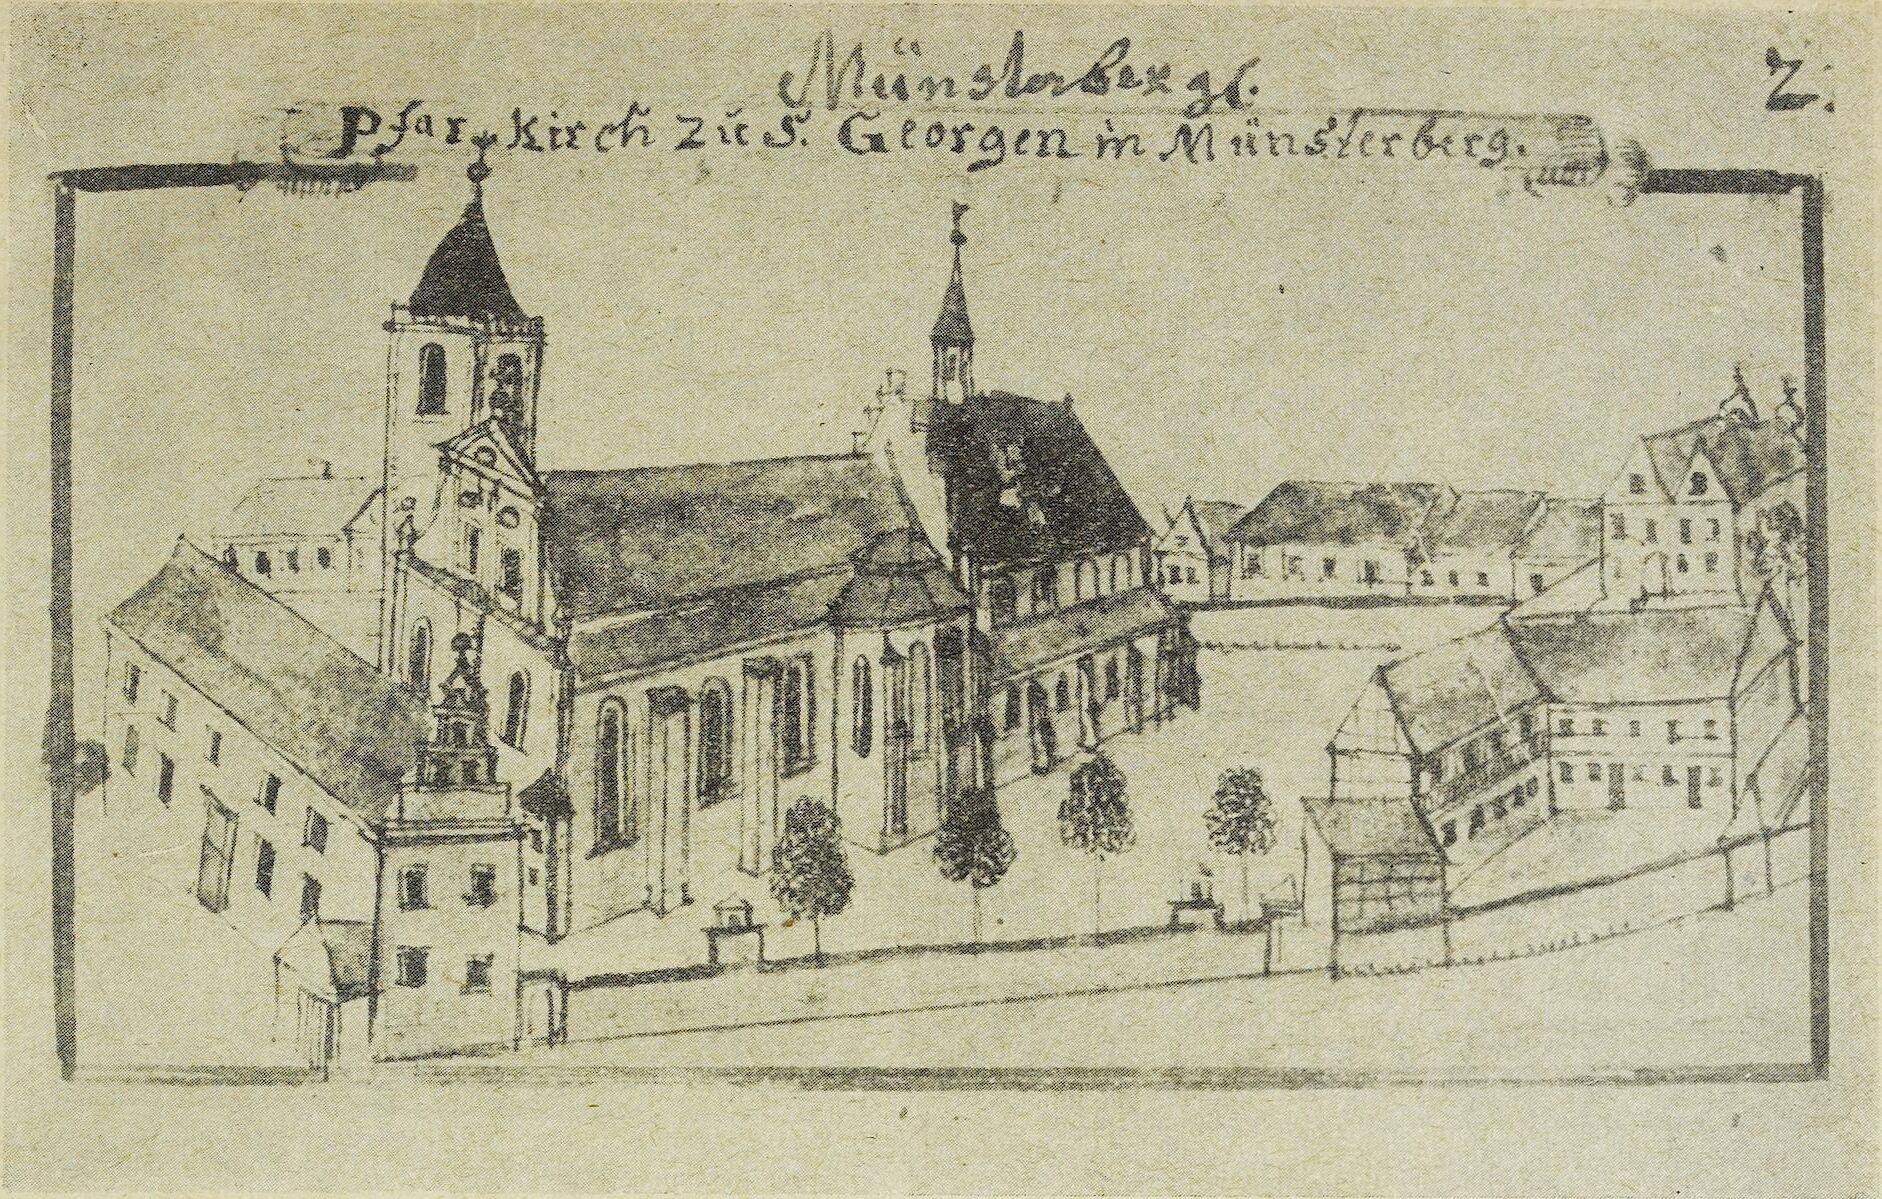 Münsterbergl.
2.
Pfar-Kirch zu S. Georgen in Münsterberg.